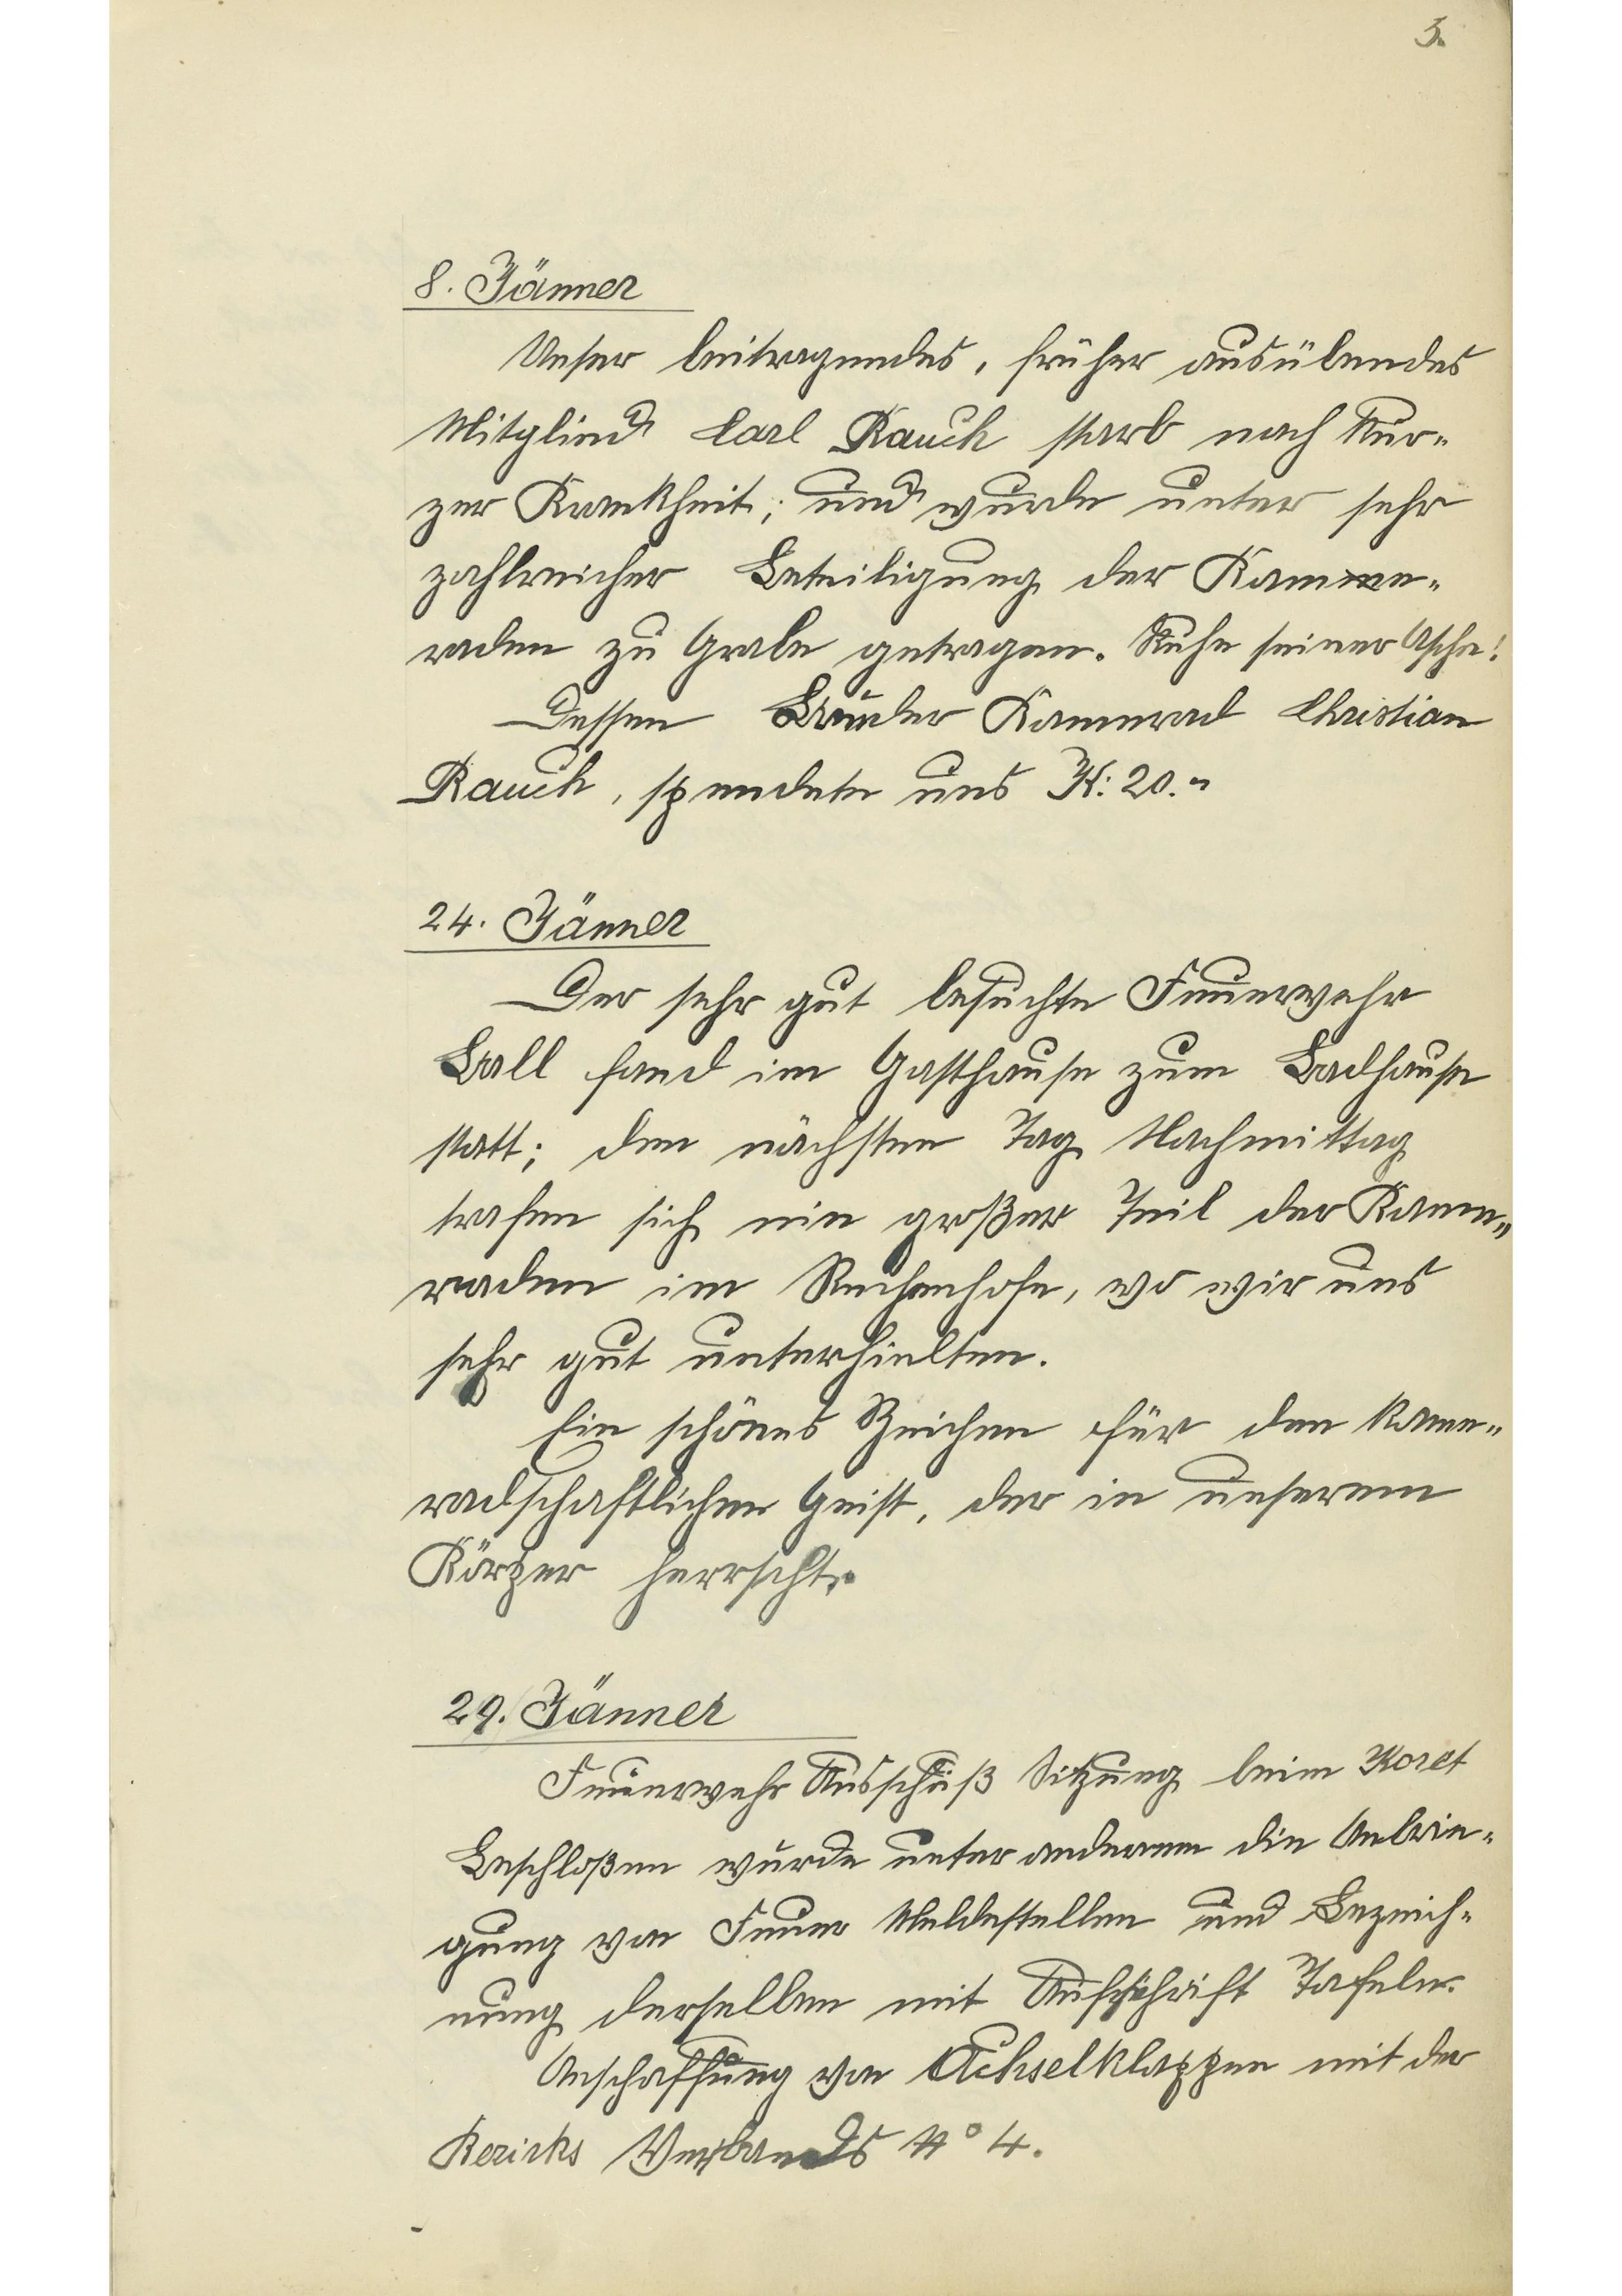 3.
8. Jänner
Unser beitragendes, früher ausübendes
Mitglied Carl Rauch starb nach kur-
zer Krankheit; und wurde unter sehr
zahlreicher Beteiligung der Kamme-
raden zu Grabe getragen. Ruhe seiner Asche!
Dessen Bruder Kammrad Christian
Rauch, spendete uns K: 20.-
24. Jänner
Der sehr gut besuchte Feuerwehr
Ball fand im Gasthause zum Badhause
statt; den nächsten Tag Nachmittag
trafen sich ein großer Teil der Kame-
raden im Rechenhofe, wo wir uns
sehr gut unterhielten.
Ein schönes Zeichen für den kame-
radschaftlichen Geist, der in unserem
Körper herrscht.
29. Jänner
Feuerwehr Ausschuß Sitzung beim
Beschloßen wurde unter anderem die Anbrin-
gung von Feuer Meldestellen und Bezeich-
nung derselben mit Aufschrift Tafeln.
Anschaffung von Achselklappen mit der
Bezirks Verbands No 4.